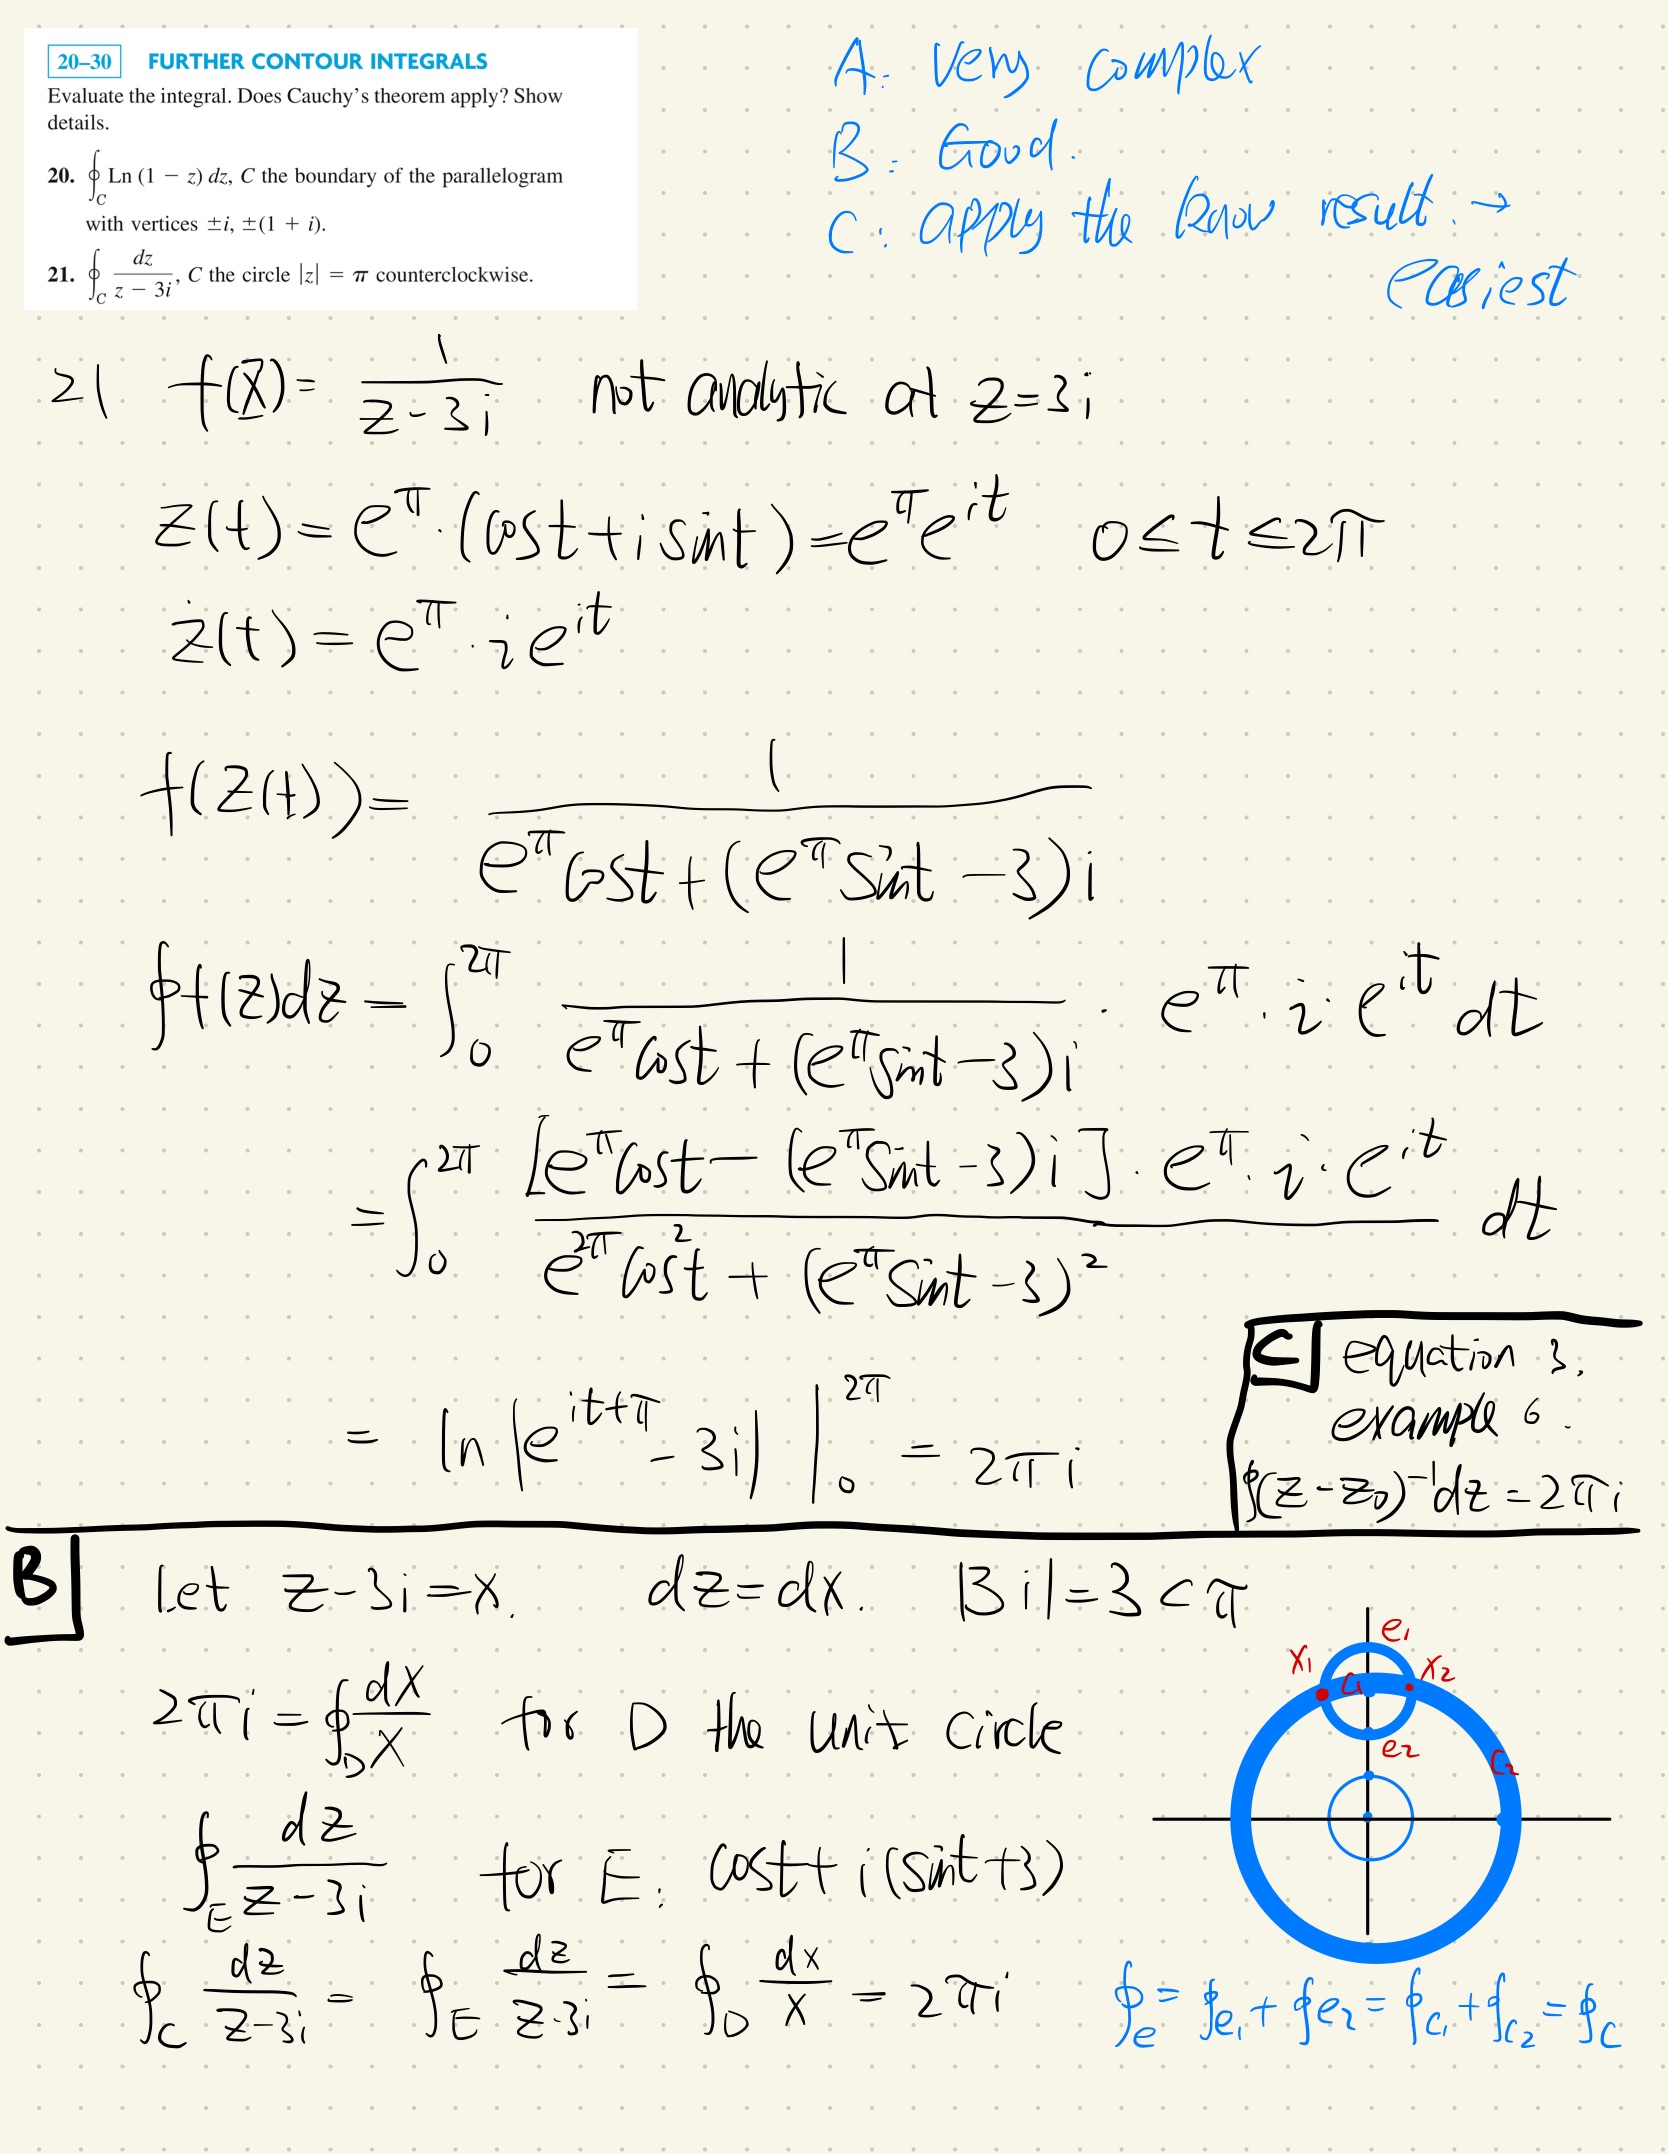 20–30 FURTHER CONTOUR INTEGRALS
Evaluate the integral. Does Cauchy's theorem apply? Show
details.
20. ∮_C Ln (1 − z) dz, C the boundary of the parallelogram
with vertices ±i, ±(1 + i).
21. ∮_C dz/(z − 3i), C the circle |z| = π counterclockwise.
A: very complex
B: Good.
C: apply the know result. →
easiest
21 f(z) = 1/(z-3i) not analytic at z=3i
z(t) = e^π·(cost+i sint) = e^π e^{it} 0≤t≤2π
ż(t) = e^π · i e^{it}
f(z(t)) = 1/(e^π cost + (e^π sint - 3)i)
∮f(z)dz = ∫_0^{2π} 1/(e^π cost + (e^π sint - 3)i) · e^π · i · e^{it} dt
= ∫_0^{2π} [e^π cost - (e^π sint - 3)i] · e^π · i · e^{it}/(e^{2π} cos²t + (e^π sint - 3)²) dt
= ln |e^{it+π} - 3i| |_0^{2π} = 2πi
C equation 3.
example 6.
∮(z-z₀)^{-1}dz = 2πi
B Let z-3i=x. dz=dx. |3i|=3<π
2πi = ∮_D dx/x for D the unit circle
∮_E dz/(z-3i) for E: cost+i(sint+3)
∮_C dz/(z-3i) = ∮_E dz/(z-3i) = ∮_D dx/x = 2πi
e₁
x₁
x₂
C₁
e₂
C₂
∮_e = ∮_{e₁} + ∮_{e₂} = ∮_{C₁} + ∮_{C₂} = ∮_C